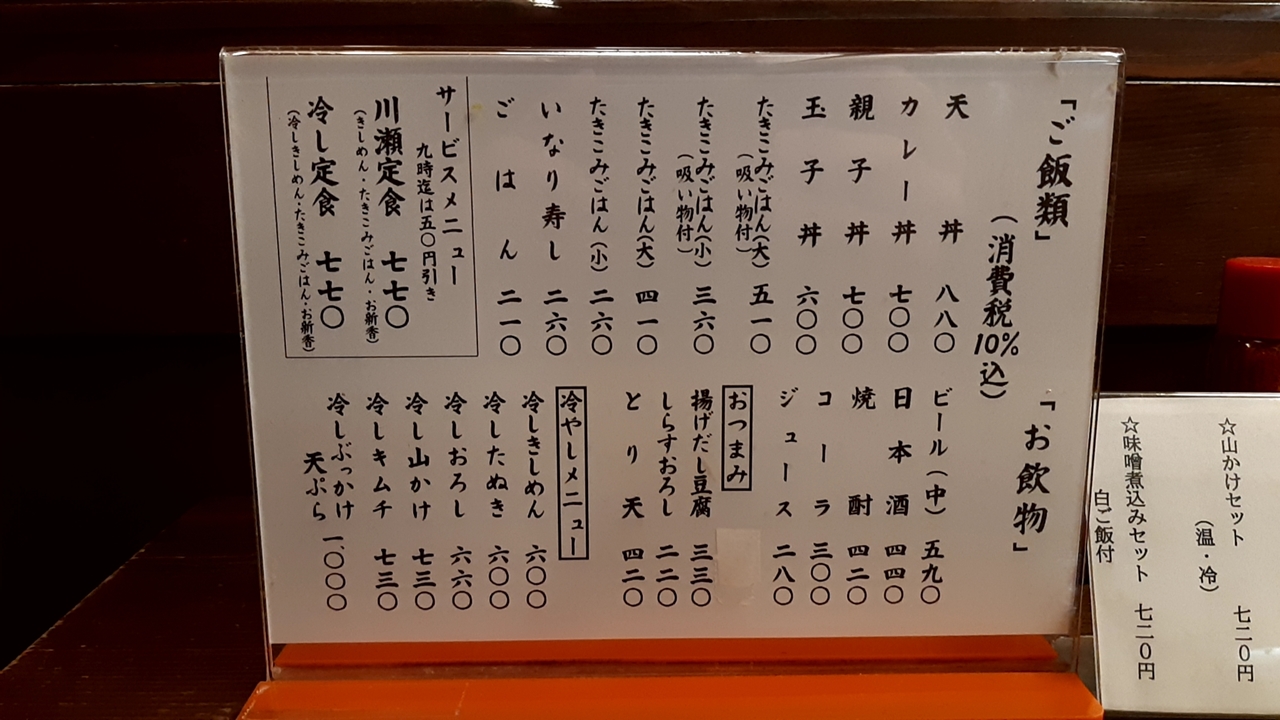 「ご飯類」
(消費税10%込)
天丼 八八〇
カレー丼 七〇〇
親子丼 七〇〇
玉子丼 六〇〇
たきこみごはん(大)
(吸い物付) 五一〇
たきこみごはん(小)
(吸い物付) 三六〇
たきこみごはん(大) 四一〇
たきこみごはん(小) 二六〇
いなり寿し 二六〇
ごはん 二一〇
サービスメニュー
九時迄は五〇円引き
川瀬定食 七七〇
(きしめん・たきこみごはん・お新香)
冷し定食 七七〇
(冷しきしめん・たきこみごはん・お新香)
「お飲物」
ビール(中) 五九〇
日本酒 四四〇
焼酎 四二〇
コーラ 三〇〇
ジュース 二八〇
おつまみ
揚げだし豆腐 三三〇
しらすおろし 二二〇
とり天 四二〇
冷やしメニュー
冷しきしめん 六〇〇
冷したぬき 六〇〇
冷しおろし 六六〇
冷し山かけ 七三〇
冷しキムチ 七三〇
冷しぶっかけ
天ぷら 一、〇〇〇
☆山かけセット 七二〇円
(温・冷)
☆味噌煮込みセット 七二〇円
白ご飯付